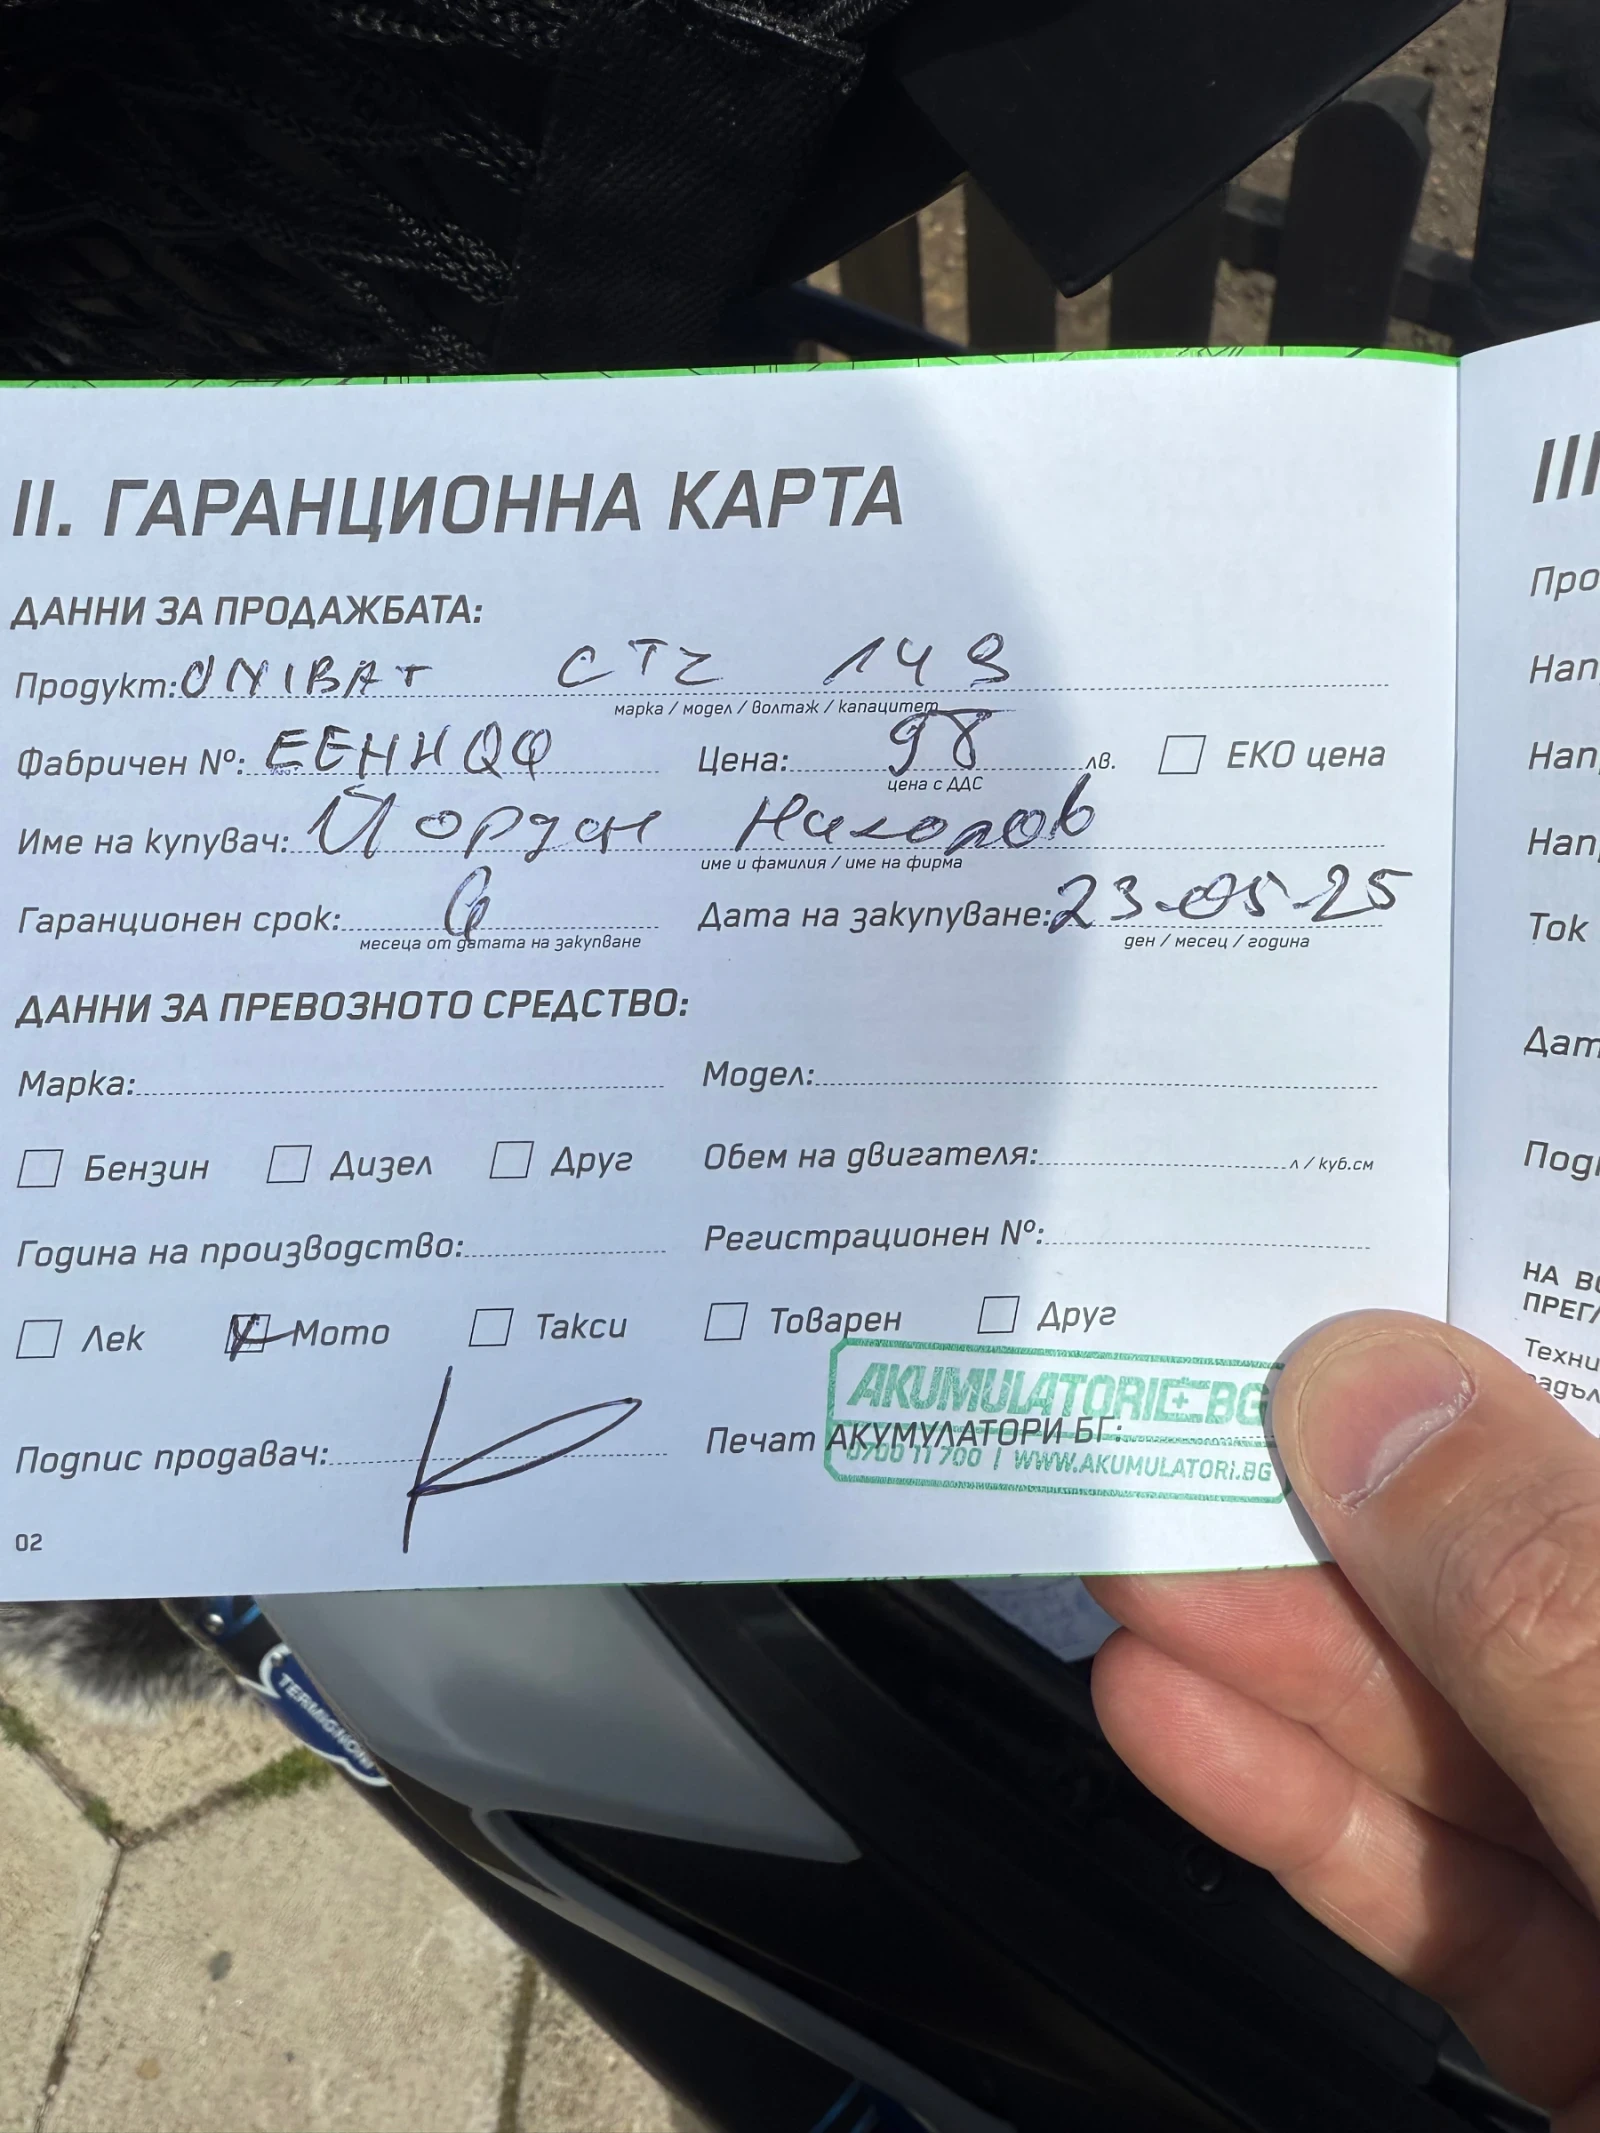 II. ГАРАНЦИОННА КАРТА
ДАННИ ЗА ПРОДАЖБАТА:
Продукт: UNIBAT CTZ 14S
марка / модел / волтаж / капацитет
Фабричен №: EEHHQQ Цена: 98 лв. ЕКО цена
цена с ДДС
Име на купувач: Йордан Николов
име и фамилия / име на фирма
Гаранционен срок: 6 Дата на закупуване: 23.05.25
месеца от датата на закупване ден / месец / година
ДАННИ ЗА ПРЕВОЗНОТО СРЕДСТВО:
Марка: Модел:
Бензин Дизел Друг Обем на двигателя: л / куб.см
Година на производство: Регистрационен №:
Лек Мото Такси Товарен Друг
AKUMULATORI BG
Подпис продавач: Печат АКУМУЛАТОРИ БГ:
0700 11 700 | WWW.AKUMULATORI.BG
02
III
Про
Нап
Нап
Нап
Ток
Дат
Под
НА ВО
ПРЕГЛ
Техни
задъл
TERMIGNONI